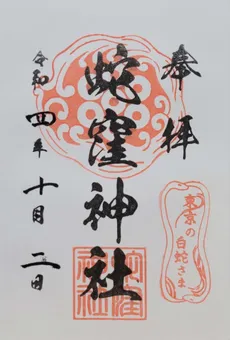 奉拝
蛇窪神社
令和四年十月二日
東京の
白蛇さま
蛇窪
神社